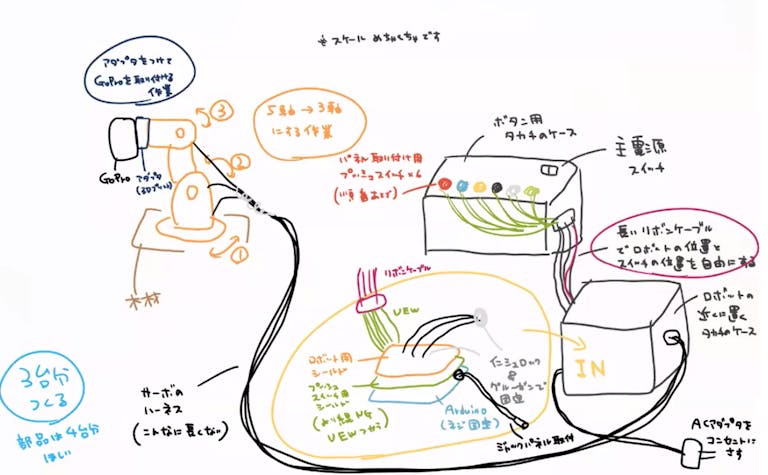 ※スケールめちゃくちゃです
アダプタをつけて
GoProを取り付ける
作業
③
5軸→3軸
にする作業
②
GoPro
アダプタ
(3Dプリント)
①
木材
ボタン用
タカチのケース
主電源
スイッチ
パネル取り付け用
プッシュスイッチ×6
(順番あとで)
長いリボンケーブル
でロボットの位置と
スイッチの位置を自由にする
リボンケーブル
UEW
ロボットの
近くに置く
タカチのケース
IN
ロボット用
シールド
プッシュ
スイッチ用
シールド
(より線NG
UEWつかう)
インシュロック
&
グルーガンで
固定
Arduino
(ネジ固定)
ジャックパネル取付
3台分
つくる
部品は4台分
ほしい
サーボの
ハーネス
(こんなに長くない)
ACアダプタを
コンセントに
さす